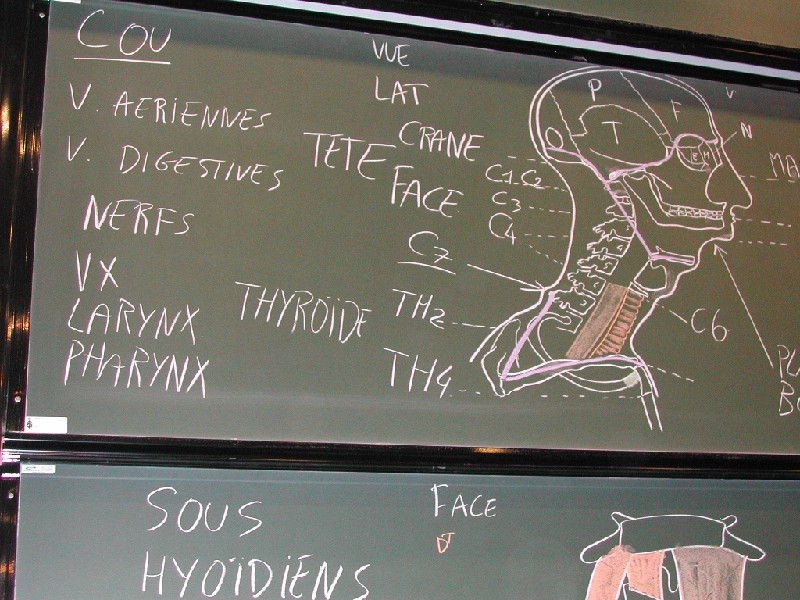 COU
V. AERIENNES
V. DIGESTIVES
NERFS
VX
LARYNX
PHARYNX
THYROÏDE
VUE
LAT
TETE
CRANE
FACE
C1 C2
C3
C4
C7
TH2
TH4
P
F
T
O
V
N
E M
C6
SOUS
HYOÏDIENS
FACE